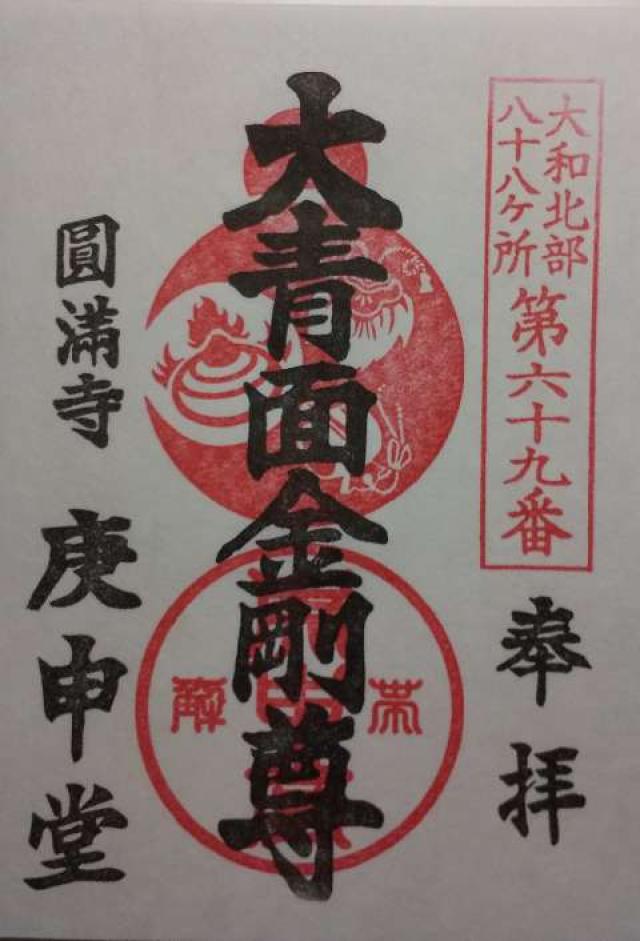 大和北部
八十八ケ所
第六十九番
奉拝
大青面金剛尊
圓満寺
庚申堂
帯
解